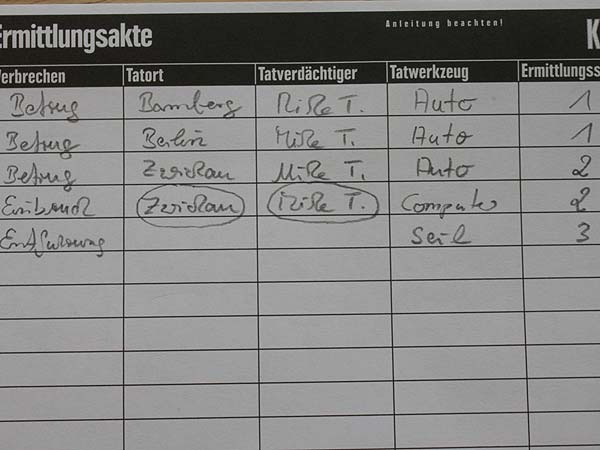 Anleitung beachten!
Ermittlungsakte K
Verbrechen Tatort Tatverdächtiger Tatwerkzeug Ermittlungss
Betrug Bamberg Mike T. Auto 1
Betrug Berlin Mike T. Auto 1
Betrug Zwickau Mike T. Auto 2
Einbruch Zwickau Mike T. Computer 2
Entführung Seil 3